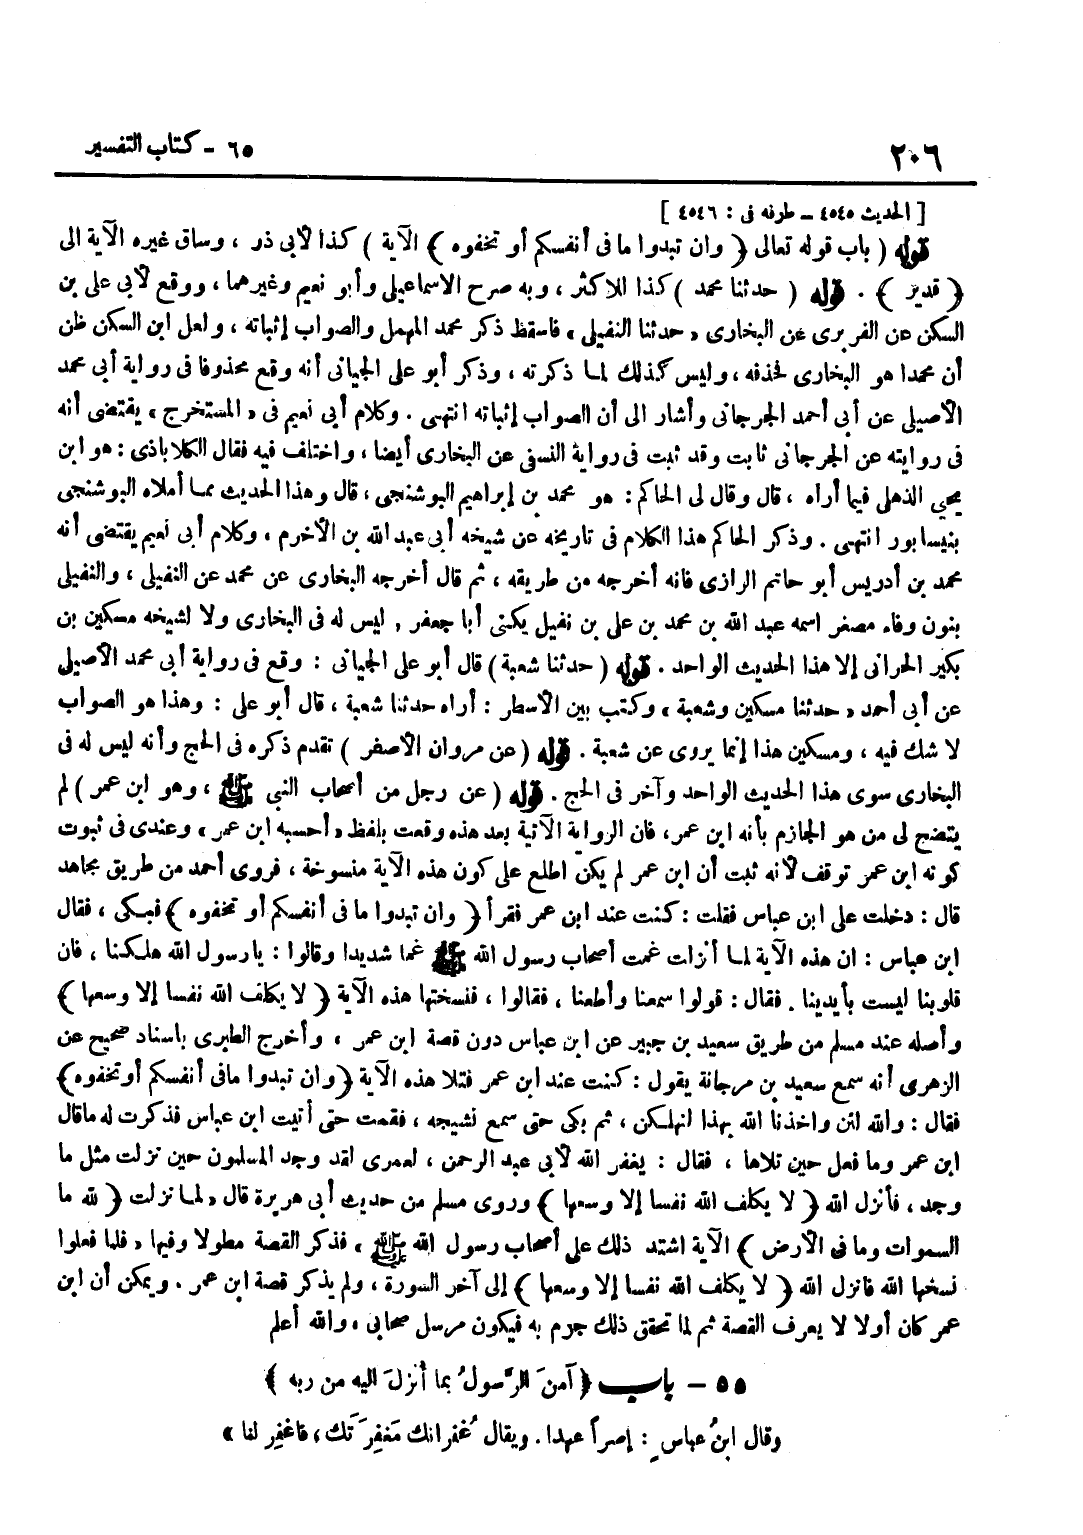 ٢٠٦ ٦٥ - كتاب التفسير
[ الحديث ٤٥٤٥ - طرفه فى : ٤٥٤٦ ]
قوله ( باب قوله تعالى ﴿ وان تبدوا ما فى أنفسكم أو تخفوه ﴾ الآية ) كذا لأبى ذر ، وساق غيره الآية الى
﴿ قدير ﴾ . قوله ( حدثنا محمد ) كذا للاكثر ، وبه صرح الاسماعيلى وأبو نعيم وغيرهما ، ووقع لأبى على بن
السكن عن الفربرى عن البخارى « حدثنا النفيلى » فاسقط ذكر محمد المهمل والصواب إثباته ، ولعل ابن السكن ظن
أن محمدا هو البخارى فحذفه ، وليس كذلك لما ذكرته ، وذكر أبو على الجيانى أنه وقع محذوفا فى رواية أبى محمد
الأصيلى عن أبى أحمد الجرجانى وأشار الى أن الصواب إثباته انتهى . وكلام أبى نعيم فى « المستخرج » يقتضى أنه
فى روايته عن الجرجانى ثابت وقد ثبت فى رواية النسفى عن البخارى أيضا ، واختلف فيه فقال الكلاباذى : هو ابن
يحيى الذهلى فيما أراه ، قال وقال لى الحاكم : هو محمد بن إبراهيم البوشنجى ، قال وهذا الحديث مما أملاه البوشنجى
بنيسابور انتهى . وذكر الحاكم هذا الكلام فى تاريخه عن شيخه أبى عبد الله بن الأخرم ، وكلام أبى نعيم يقتضى أنه
محمد بن أدريس أبو حاتم الرازى فانه أخرجه من طريقه ، ثم قال أخرجه البخارى عن محمد عن النفيلى ، والنفيلى
بنون وفاء مصغر اسمه عبد الله بن محمد بن على بن نفيل يكنى أبا جعفر , ليس له فى البخارى ولا لشيخه مسكين بن
بكير الحرانى إلا هذا الحديث الواحد . قوله ( حدثنا شعبة ) قال أبو على الجيانى : وقع فى رواية أبى محمد الأصيلى
عن أبى أحمد « حدثنا مسكين وشعبة » وكتب بين الأسطر : أراه حدثنا شعبة ، قال أبو على : وهذا هو الصواب
لا شك فيه ، ومسكين هذا إنما يروى عن شعبة . قوله ( عن مروان الأصفر ) تقدم ذكره فى الحج وأنه ليس له فى
البخارى سوى هذا الحديث الواحد وآخر فى الحج . قوله ( عن رجل من أصحاب النبى ﷺ ، وهو ابن عمر ) لم
يتضح لى من هو الجازم بأنه ابن عمر ، فان الرواية الآتية بعد هذه وقعت بلفظ « أحسبه ابن عمر » وعندى فى ثبوت
كونه ابن عمر توقف لأنه ثبت أن ابن عمر لم يكن اطلع على كون هذه الآية منسوخة ، فروى أحمد من طريق مجاهد
قال : دخلت على ابن عباس فقلت : كنت عند ابن عمر فقرأ ﴿ وان تبدوا ما فى أنفسكم أو تخفوه ﴾ فبكى ، فقال
ابن عباس : ان هذه الآية لما أنزلت غمت أصحاب رسول الله ﷺ غما شديدا وقالوا : يارسول الله هلكنا ، فان
قلوبنا ليست بأيدينا . فقال : قولوا سمعنا وأطعنا ، فقالوا ، فنسختها هذه الآية ﴿ لا يكلف الله نفسا إلا وسعها ﴾
وأصله عند مسلم من طريق سعيد بن جبير عن ابن عباس دون قصة ابن عمر ، وأخرج الطبرى باسناد صحيح عن
الزهرى أنه سمع سعيد بن مرجانة يقول : كنت عند ابن عمر فتلا هذه الآية ﴿ وان تبدوا مافى أنفسكم أو تخفوه ﴾
فقال : والله لئن واخذنا الله بهذا لنهلكن ، ثم بكى حتى سمع نشيجه ، فقمت حتى أتيت ابن عباس فذكرت له ماقال
ابن عمر وما فعل حين تلاها ، فقال : يغفر الله لأبى عبد الرحمن ، لعمرى لقد وجد المسلمون حين نزلت مثل ما
وجد ، فأنزل الله ﴿ لا يكلف الله نفسا إلا وسعها ﴾ وروى مسلم من حديث أبى هريرة قال « لما نزلت ﴿ لله ما
السموات وما فى الأرض ﴾ الآية اشتد ذلك على أصحاب رسول الله ﷺ » فذكر القصة مطولا وفيها « فلما فعلوا
نسخها الله فانزل الله ﴿ لا يكلف الله نفسا إلا وسعها ﴾ إلى آخر السورة ، ولم يذكر قصة ابن عمر . ويمكن أن ابن
عمر كان أولا لا يعرف القصة ثم لما تحقق ذلك جزم به فيكون مرسل صحابى ، والله أعلم
٥٥ - باب ﴿ آمنَ الرَّسولُ بما أُنزِلَ اليه من ربه ﴾
وقال ابنُ عباسٍ : إصراً عهدا . ويقال غُفرانك مَغفِرَتَك ، فاغفِر لنا »